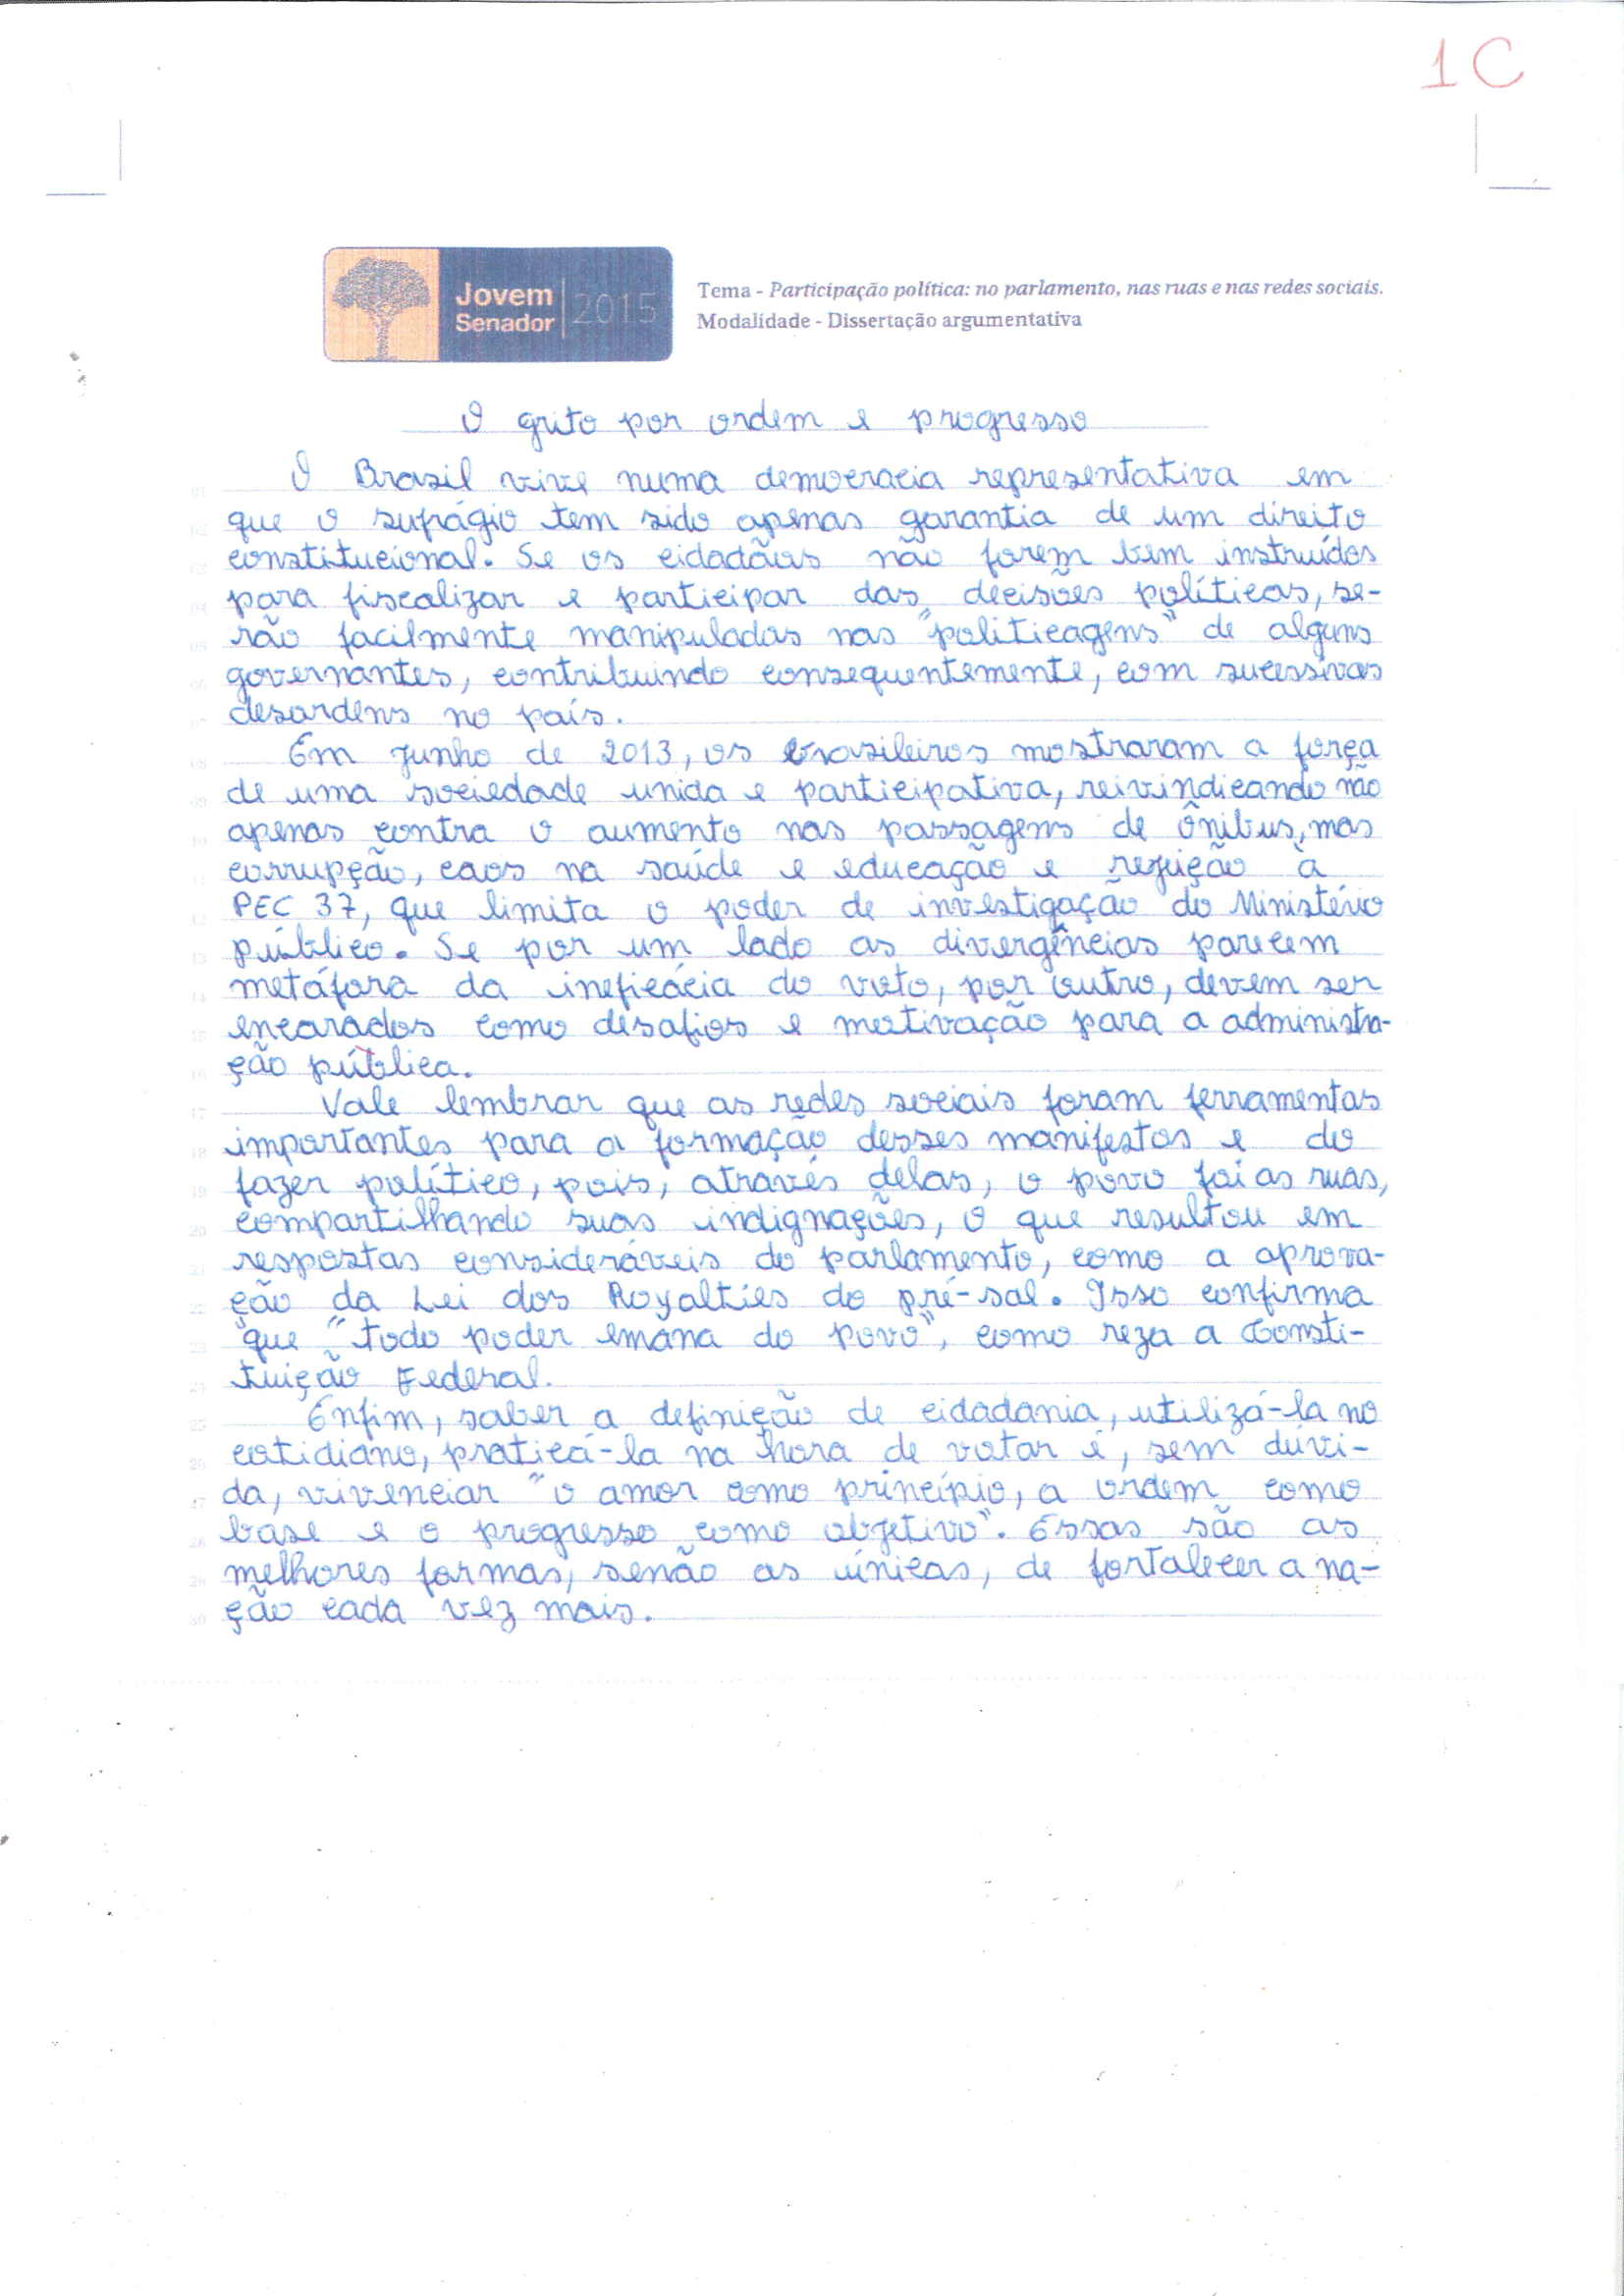 1C
Jovem
Senador
2015
Tema - Participação política: no parlamento, nas ruas e nas redes sociais.
Modalidade - Dissertação argumentativa
O grito por ordem e progresso
01 O Brasil vive numa democracia representativa em
02 que o sufrágio tem sido apenas garantia de um direito
03 constitucional. Se os cidadãos não forem bem instruídos
04 para fiscalizar e participar das decisões políticas, se-
05 rão facilmente manipulados nas "politicagens" de alguns
06 governantes, contribuindo consequentemente, com sucessivas
07 desordens no país.
08 Em junho de 2013, os brasileiros mostraram a força
09 de uma sociedade unida e participativa, reivindicando não
10 apenas contra o aumento nas passagens de ônibus, mas
11 corrupção, caos na saúde e educação e rejeição à
12 PEC 37, que limita o poder de investigação do Ministério
13 público. Se por um lado as divergências parecem
14 metáfora da ineficácia do voto, por outro, devem ser
15 encarados como desafios e motivação para a administra-
16 ção pública.
17 Vale lembrar que as redes sociais foram ferramentas
18 importantes para a formação desses manifestos e do
19 fazer político, pois, através delas, o povo foi as ruas,
20 compartilhando suas indignações, o que resultou em
21 respostas consideráveis do parlamento, como a aprova-
22 ção da Lei dos Royalties do pré-sal. Isso confirma
23 que "todo poder emana do povo", como reza a Consti-
24 tuição Federal.
25 Enfim, saber a definição de cidadania, utilizá-la no
26 cotidiano, praticá-la na hora de votar é, sem dúvi-
27 da, vivenciar "o amor como princípio, a ordem como
28 base e o progresso como objetivo". Essas são as
29 melhores formas, senão as únicas, de fortalecer a na-
30 ção cada vez mais.